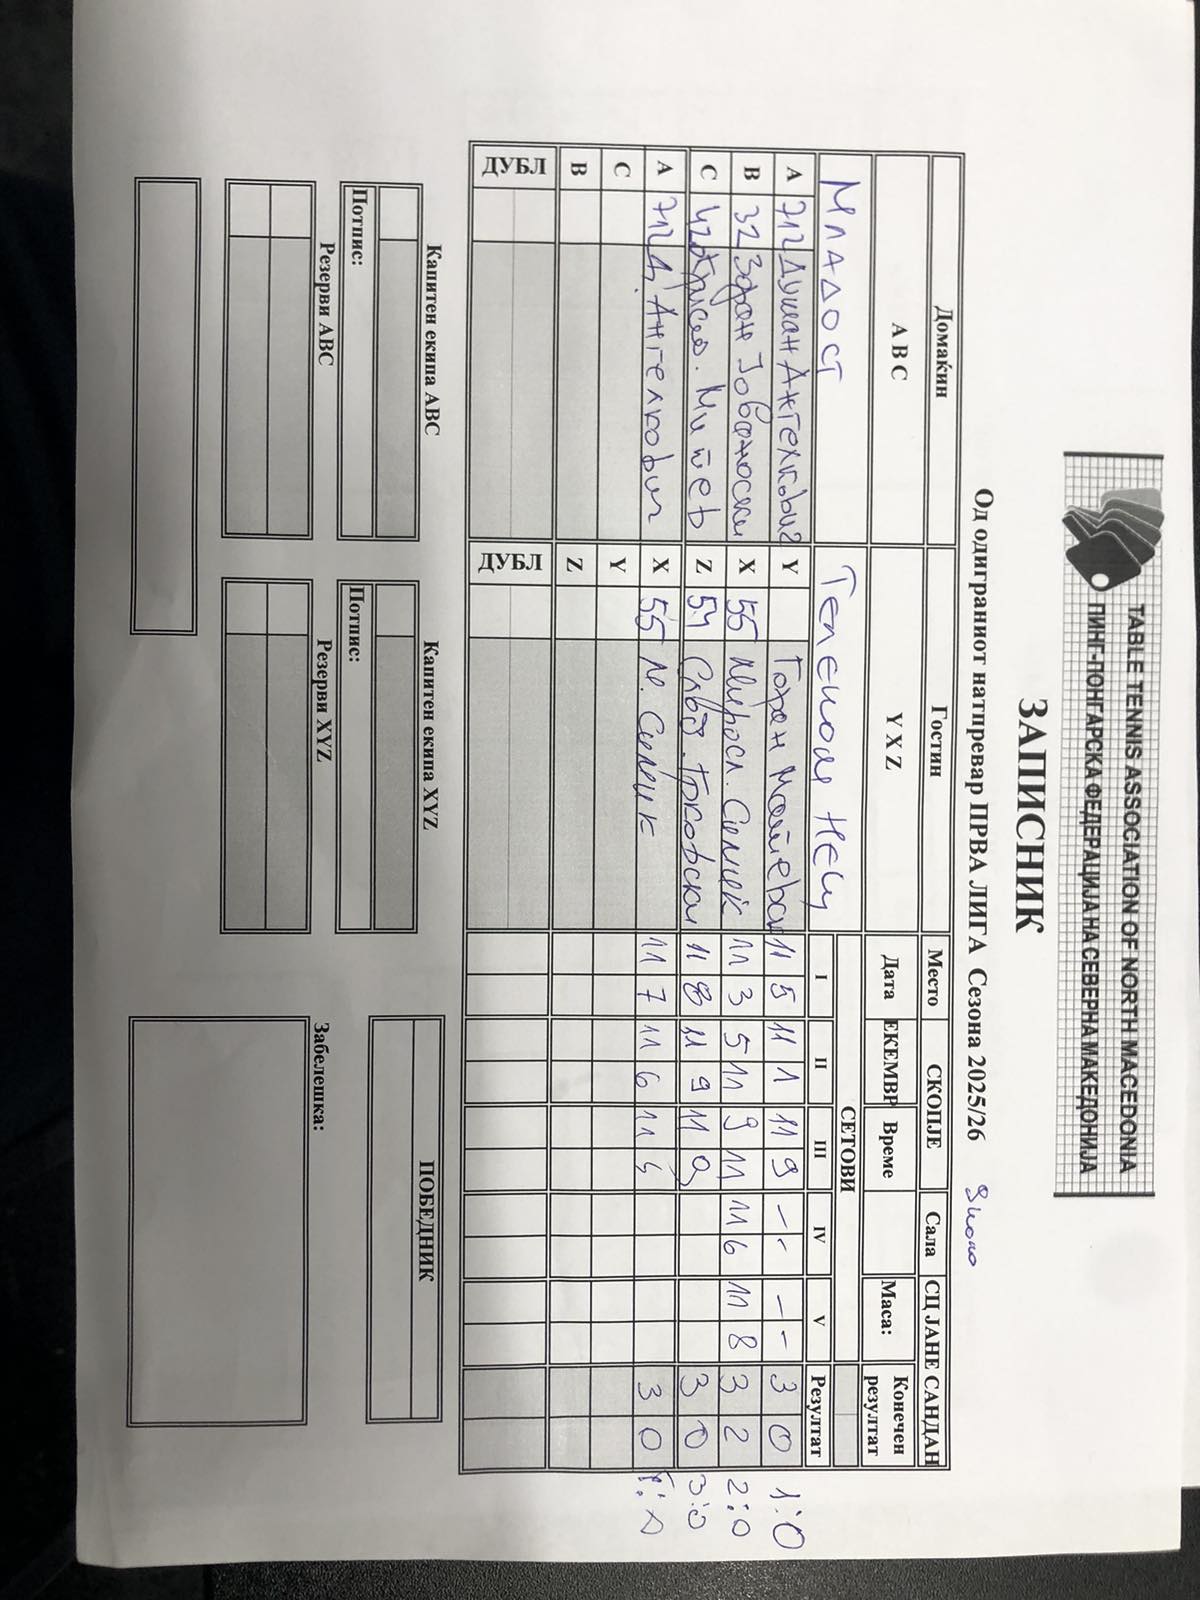 TABLE TENNIS ASSOCIATION OF NORTH MACEDONIA
ПИНГ-ПОНГАРСКА ФЕДЕРАЦИЈА НА СЕВЕРНА МАКЕДОНИЈА
ЗАПИСНИК
Од одиграниот натпревар ПРВА ЛИГА Сезона 2025/26
Домаќин Гостин Место СКОПЈЕ Сала СЦ ЈАНЕ САНДАН
А В С Y X Z Дата ЕКЕМВР Време Маса: Конечен резултат
СЕТОВИ
МЛАДОСТ I II III IV V Резултат
A 712 Душан Ангелковиќ Y Горан 11 5 11 1 11 9 - - - - 3 0 1:0
B 32 Зоран Јовановски X 55 Миросл. 11 3 5 11 9 11 11 6 11 8 3 2 2:0
C Митев Z 54 11 8 11 9 11 9 3 0 3:0
A 712 Д. Ангелковиќ X 55 М. 11 7 11 6 11 3 0
C Y
B Z
ДУБЛ ДУБЛ
Капитен екипа ABC Капитен екипа XYZ ПОБЕДНИК
Потпис: Потпис:
Резерви ABC Резерви XYZ Забелешка: